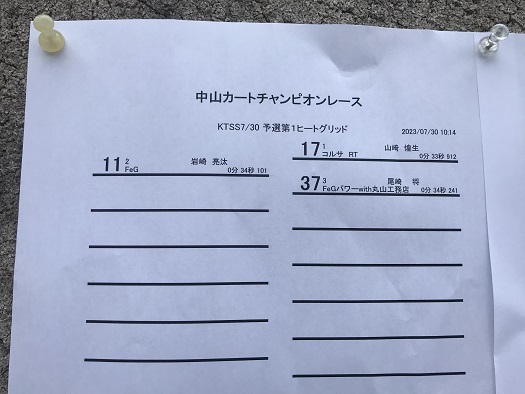 中山カートチャンピオンレース
KTSS7/30 予選第1ヒートグリッド
2023/07/30 10:14
17 1 山崎 煌生
コルサ RT 0分 33秒 912
11 2 岩崎 亮汰
FeG 0分 34秒 101
37 3 尾崎 将
FeGパワーwith丸山工務店 0分 34秒 241